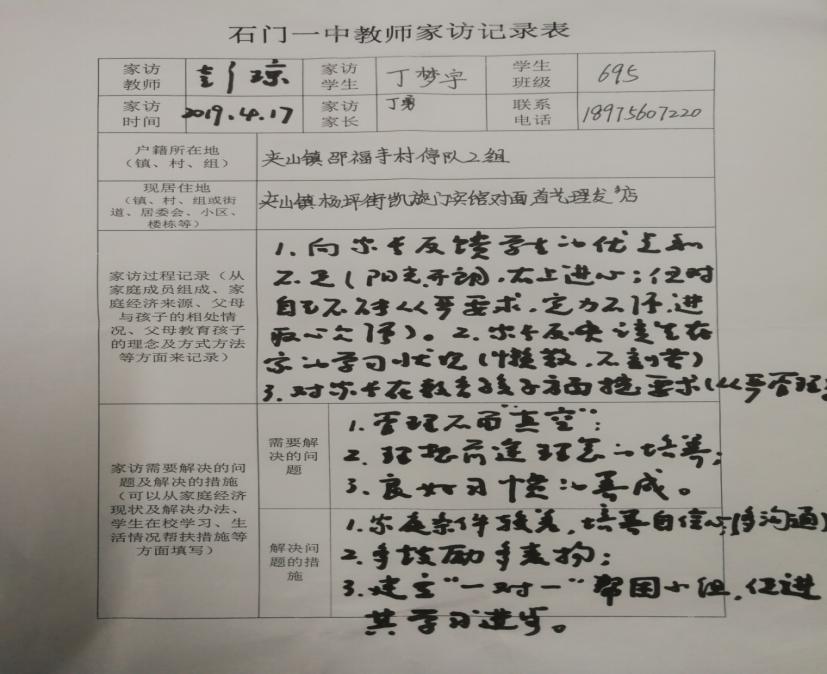 石门一中教师家访记录表
家访教师 彭琼 家访学生 丁梦宇 学生班级 695
家访时间 2019.4.17 家访家长 丁勇 联系电话 18975607220
户籍所在地（镇、村、组） 夹山镇邵福寺村停队2组
现居住地（镇、村、组或街道、居委会、小区、楼栋等） 夹山镇杨坪街凯旋门宾馆对面首艺理发店
家访过程记录（从家庭成员组成、家庭经济来源、父母与孩子的相处情况、父母教育孩子的理念及方式方法等方面来记录）
1.向家长反馈学生的优点和
不足(阳光开朗,有上进心;但对
自己不够从严要求,定力不够,进
取心欠缺)。2.家长反映该生在
家的学习状况(懒散,不刻苦)
3.对家长在教育孩子方面提要求(从严管理
家访需要解决的问题及解决的措施（可以从家庭经济现状及解决办法、学生在校学习、生活情况帮扶措施等方面填写）
需要解决的问题
1.管理不留"真空";
2.理想前途理念的培养;
3.良好习惯的养成。
解决问题的措施
1.家庭条件较差,培养自信心(多沟通)
2.多鼓励多表扬;
3.建立"一对一"帮困小组,促进
其学习进步。